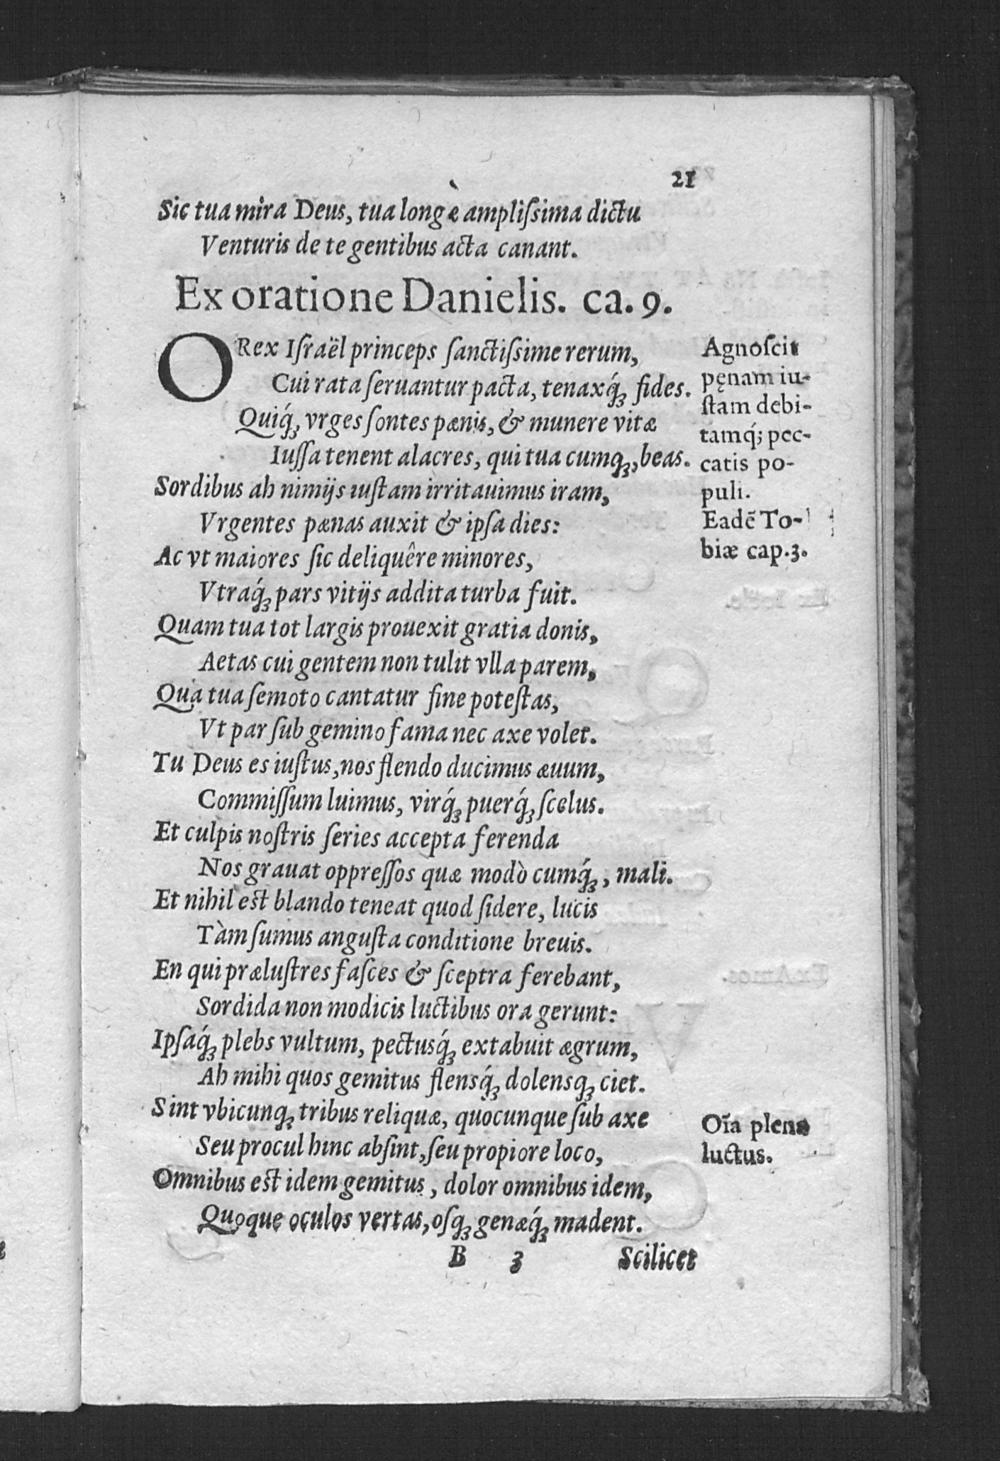 21
Sic tua mira Deus, tua longè amplißima dictu
Venturis de te gentibus acta canant.
Ex oratione Danielis. ca. 9.
O Rex Iſraël princeps ſanctißime rerum,
Cui rata ſeruantur pacta, tenaxq́ꝫ fides.
Quiq́ꝫ, vrges ſontes pœnis, & munere vitæ
Iuſſa tenent alacres, qui tua cumqꝫ, beas.
Sordibus ah nimijs iuſtam irritauimus iram,
Vrgentes pœnas auxit & ipſa dies:
Ac vt maiores ſic deliquêre minores,
Vtraq́ꝫ pars vitijs addita turba fuit.
Quam tua tot largis prouexit gratia donis,
Aetas cui gentem non tulit vlla parem,
Qua tua ſemoto cantatur fine poteſtas,
Vt par ſub gemino fama nec axe volet.
Tu Deus es iuſtus, nos flendo ducimus æuum,
Commiſſum luimus, virq́ꝫ puerq́ꝫ ſcelus.
Et culpis noſtris ſeries accepta ferenda
Nos grauat oppreſſos quæ modò cumq́ꝫ, mali.
Et nihil eſt blando teneat quod ſidere, lucis
Tàm ſumus anguſta conditione breuis.
En qui præluſtres faſces & ſceptra ferebant,
Sordida non modicis luctibus ora gerunt:
Ipſaq́ꝫ plebs vultum, pectusq́ꝫ extabuit ægrum,
Ah mihi quos gemitus flensq́ꝫ dolensqꝫ ciet.
Sint vbicunqꝫ tribus reliquæ, quocunque ſub axe
Seu procul hinc abſint, ſeu propiore loco,
Omnibus eſt idem gemitus, dolor omnibus idem,
Quoque oculos vertas, oſqꝫ genæq́ꝫ madent.
B 3 Scilicet
Agnoſcit
pęnam iu-
ſtam debi-
tamq́; pec-
catis po-
puli.
Eadē To-
biæ cap.3.
Oīa plena
luctus.